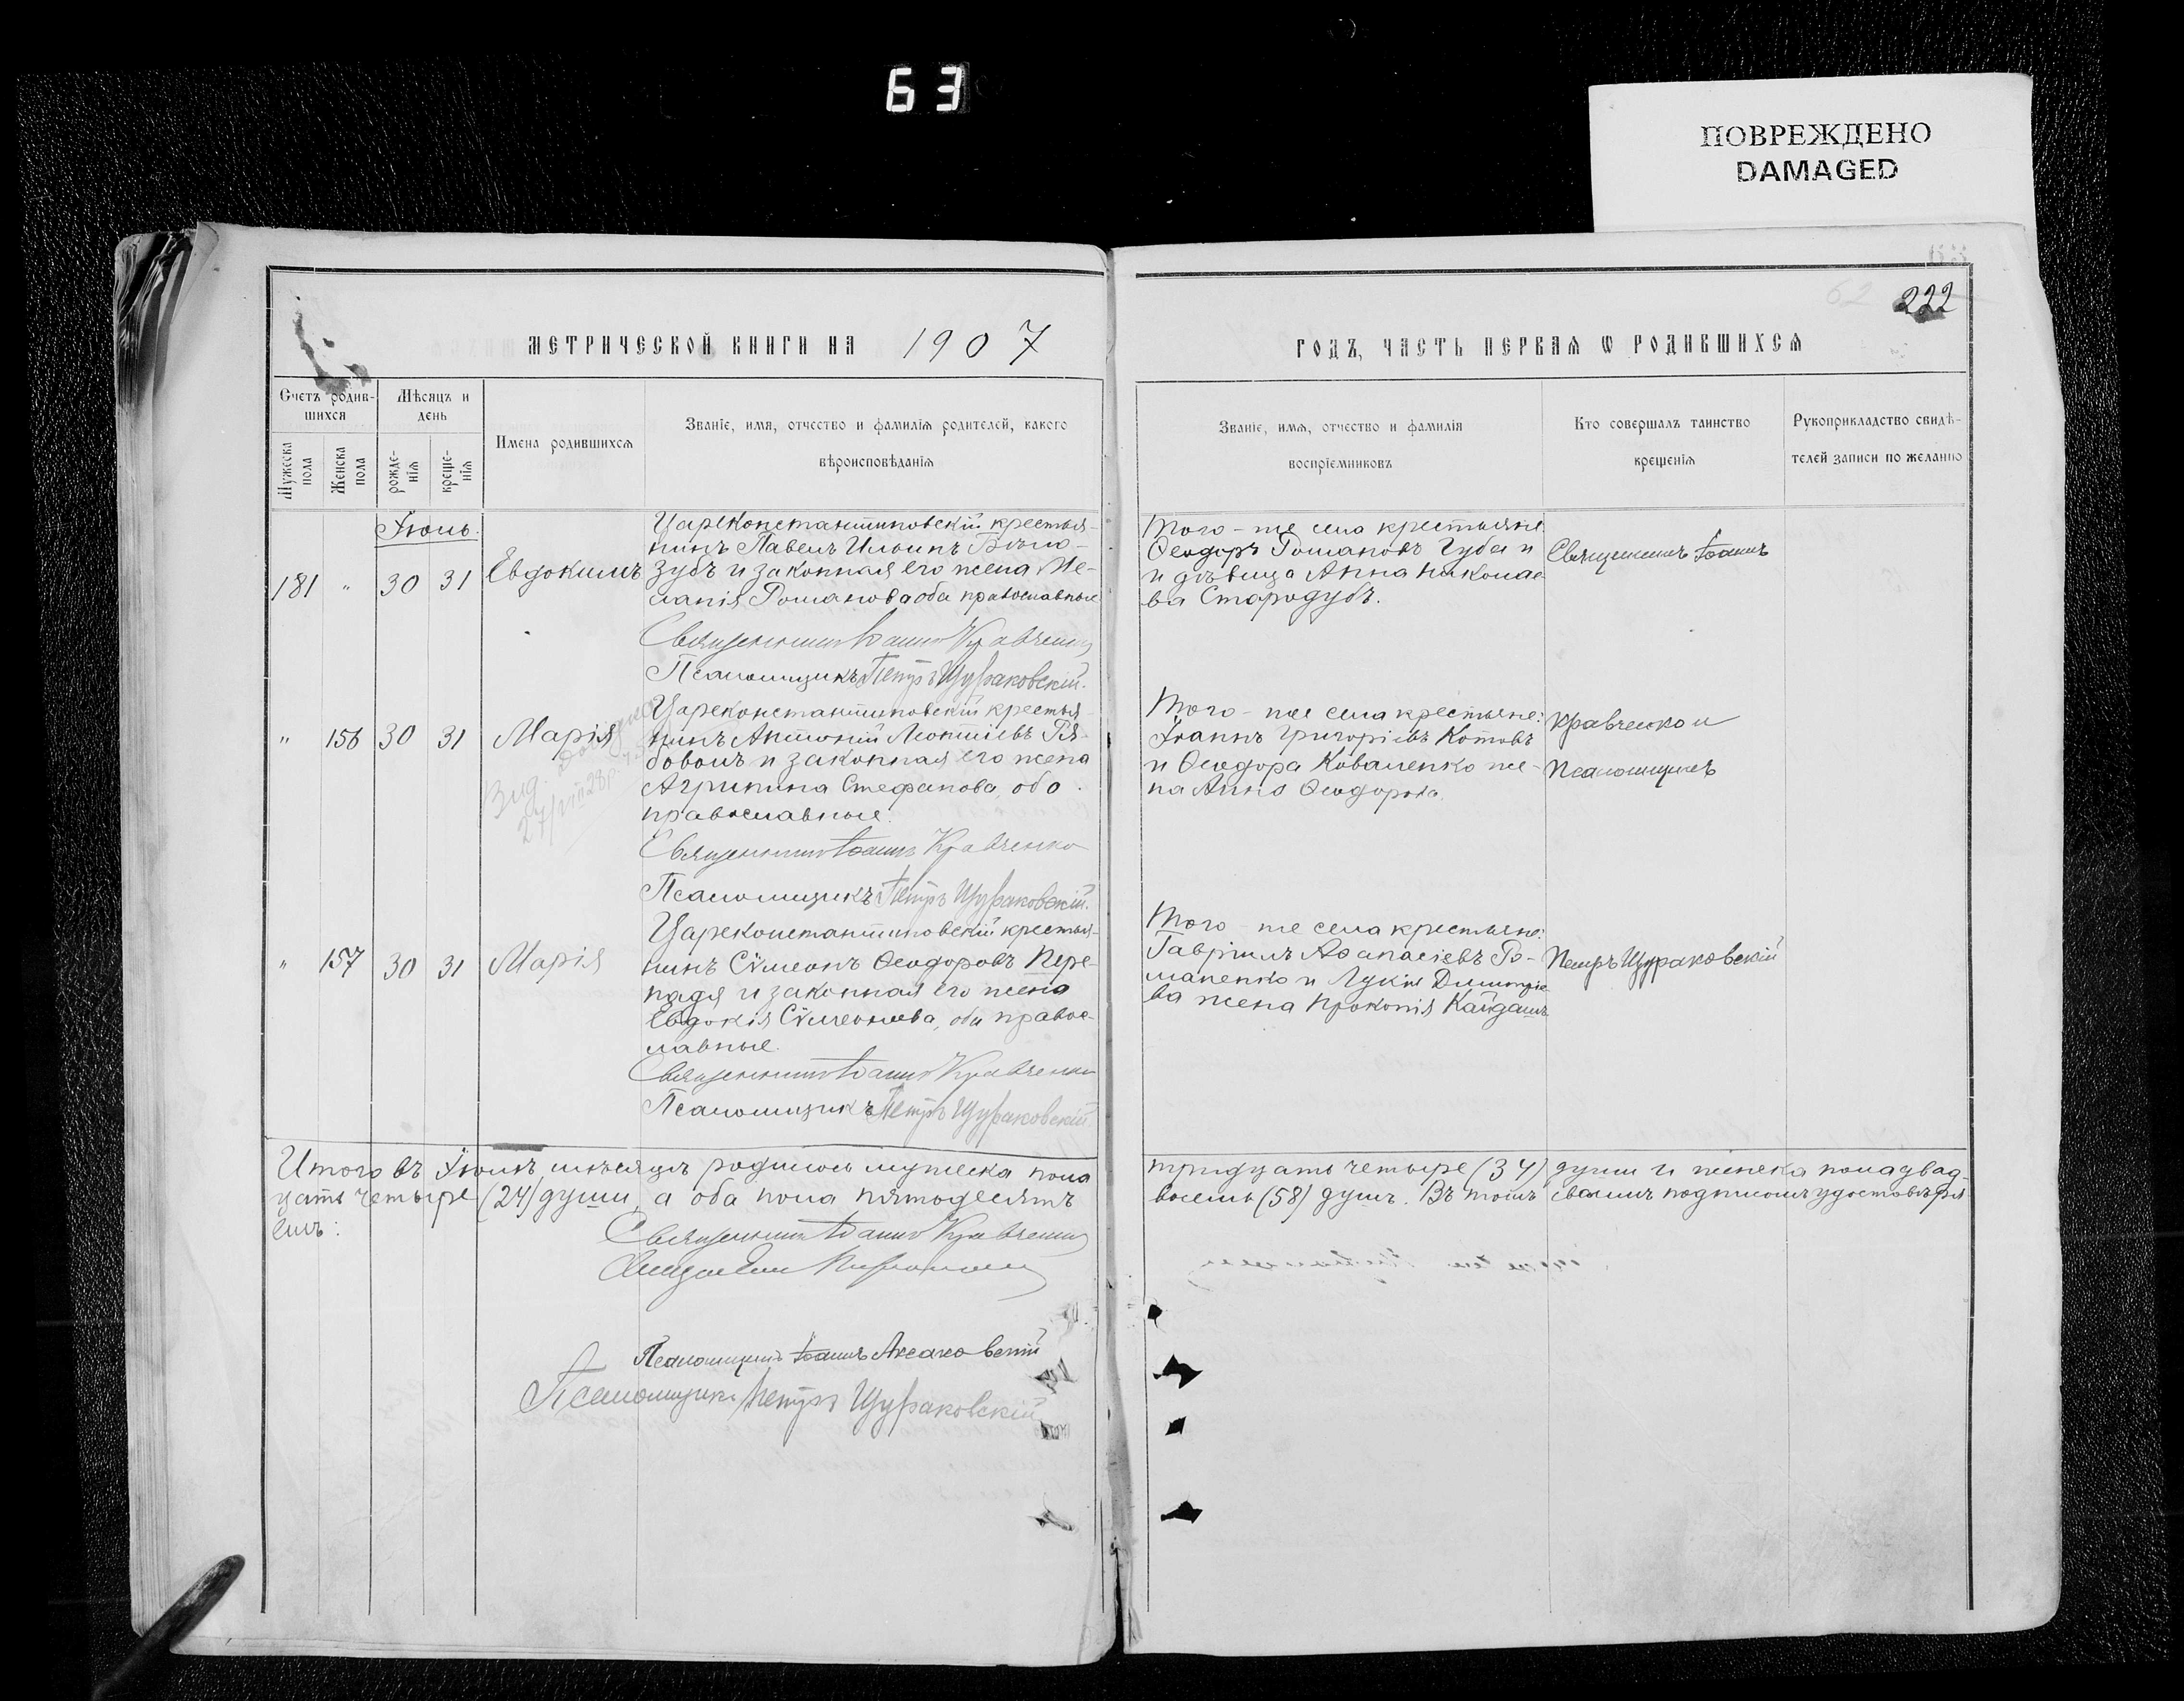 63
ПОВРЕЖДЕНО
DAMAGED
222
МЕТРИЧЕСКОЙ КНИГИ НА 1907
ГОДЪ, ЧАСТЬ ПЕРВАЯ Ѡ РОДИВШИХСЯ
Счетъ родив-
шихся
Мужеска
пола
Женска
пола
Мѣсяцъ и
день
рожде-
нія
креще-
нія
Имена родившихся
Званіе, имя, отчество и фамилія родителей, какого
вѣроисповѣданія
Званіе, имя, отчество и фамилія
воспріемниковъ
Кто совершалъ таинство
крещенія
Рукоприкладство свидѣ-
телей записи по желанію
Іюль.
181 " 30 31 Евдокимъ
Цареконстантиновскій крестья-
нинъ Павелъ Ильинъ Бѣло-
зубъ и законная его жена Ме-
ланія Романова оба православные
Священникъ Іоаннъ Кравченко
Псаломщикъ Петръ Щураковскій.
Того-же села крестьяне
Ѳеодоръ Романовъ Губа и
и дѣвица Анна Николае-
ва Стародубъ.
Священникъ Іоаннъ
" 156 30 31 Марія
Цареконстантиновскій крестья-
нинъ Антоній Леонтіевъ Ря-
боволъ и законная его жена
Агрипина Стефанова, оба
православные.
Священникъ Іоаннъ Кравченко
Псаломщикъ Петръ Щураковскій.
Того-же села крестьяне:
Іоаннъ Григоріевъ Котовъ
и Ѳеодора Коваленко же-
на Анна Ѳеодорова.
Кравченко и
Псаломщикъ
" 157 30 31 Марія
Цареконстантиновскій крестья-
нинъ Сѵмеонъ Ѳеодоровъ Пере-
падя и законная его жена
Евдокія Сѵмеонова, оба правос-
лавные.
Священникъ Іоаннъ Кравченко
Псаломщикъ Петръ Щураковскій
Того-же села крестьяне:
Гавріилъ Аѳанасіевъ Ро-
маненко и Лукія Димитріе-
ва жена Прокопія Кайдашъ
Петръ Щураковскій
Итого въ Іюлѣ мѣсяцѣ родилось мужеска пола тридцать четыре (34) души и женска пола двад-
цать четыре (24) души, а оба пола пятьдесятъ восемь (58) душъ. Въ томъ своимъ подписомъ удостовѣря-
емъ:
Священникъ Іоаннъ Кравченко
Псаломщикъ Іоаннъ Аксаковскій
Псаломщикъ Петръ Щураковскій